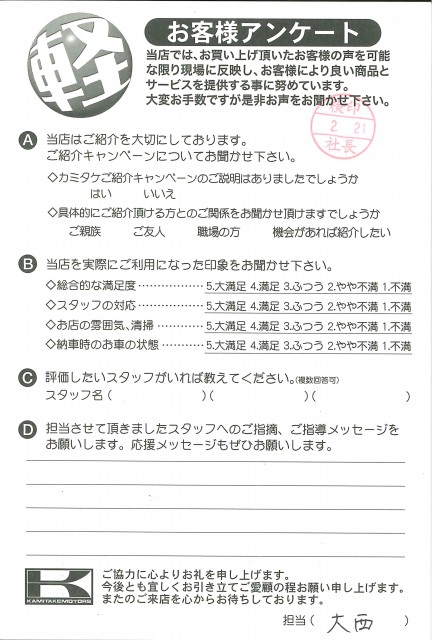 軽
お客様アンケート
当店では、お買い上げ頂いたお客様の声を可能
な限り現場に反映し、お客様により良い商品と
サービスを提供する事に努めています。
大変お手数ですが是非お声をお聞かせ下さい。
検印
2. 21
社長
A 当店はご紹介を大切にしております。
ご紹介キャンペーンについてお聞かせ下さい。
◇カミタケご紹介キャンペーンのご説明はありましたでしょうか
はい いいえ
◇具体的にご紹介頂ける方とのご関係をお聞かせ頂けますでしょうか
ご親族 ご友人 職場の方 機会があれば紹介したい
B 当店を実際にご利用になった印象をお聞かせ下さい。
◇総合的な満足度⋯⋯⋯⋯⋯ 5.大満足 4.満足 3.ふつう 2.やや不満 1.不満
◇スタッフの対応⋯⋯⋯⋯⋯ 5.大満足 4.満足 3.ふつう 2.やや不満 1.不満
◇お店の雰囲気、清掃⋯⋯⋯ 5.大満足 4.満足 3.ふつう 2.やや不満 1.不満
◇納車時のお車の状態⋯⋯⋯ 5.大満足 4.満足 3.ふつう 2.やや不満 1.不満
C 評価したいスタッフがいれば教えてください。(複数回答可)
スタッフ名 ( )( )( )
D 担当させて頂きましたスタッフへのご指摘、ご指導メッセージを
お願いします。応援メッセージもぜひお願いします。
K
KAMITAKEMOTORS
ご協力に心よりお礼を申し上げます。
今後とも宜しくお引き立てご愛顧の程お願い申し上げます。
またのご来店を心からお待ちしております。
担当 ( 大西 )